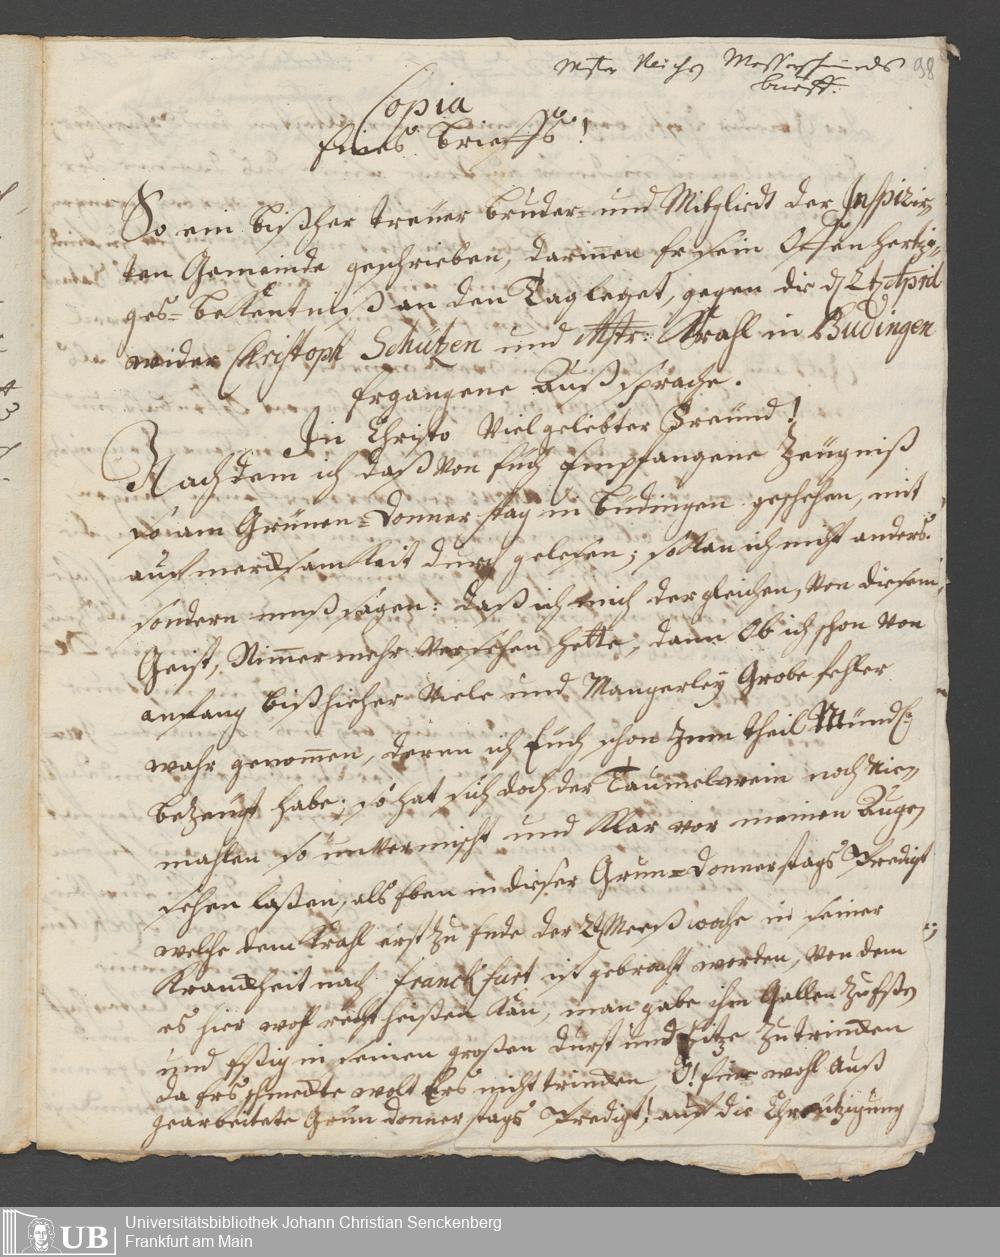 Mstr Reichs Messerschmieds 98
brieff.
Copia
Eines Brieffs!
So ein bißher treuer bruder- und Mitgliedt der Inspirir-
ten Gemeinde geschrieben, darinnen Er sein Offenhertzi-
ges-bekentniß an den Tag leget, gegen die d 24 April
wider Christoph Schützen und Mstr: Krahl in Büdingen
Ergangene Außsprache.
In Christo Vielgeliebter Freünd!
Nachdem ich daß Von Euch Empfangene Zeügniß
so am Grünen-Donnerstag in Budingen geschehen, mit
aufmercksamkeit durch gelesen; so kan ich nicht anders
sondern muß sagen: daß ich mich dergleichen, Von diesem
Geist, Nimmermehr Versehen hette, dann Ob ich schon Von
anfang bißhieher Viele und Mangerleÿ Grobe fehler
wahr genommen, deren ich Euch schon zum theil Mündl:
bezeugt habe; so hat sich doch der Taumelwein noch Nie-
mahlen so unvermischt und klar vor meinen Augen
sehen laßen, als Eben in dieser Grün-Donnerstags Predigt
welche dem Krahl erst zu Ende der Meeß woche in seiner
Kranckheit nach franckfurt ist gebracht worden, Von dem
es hier wohl recht heißen kan, man gabe ihm Gallen zu Eßen
und Eßig in seinen großen durst und hitze zu trincken
da Ers schmeckte wolt Ers nicht trincken, O! Eine wohl Auß
gearbeitete Grün donnerstags Predigt! auf die Chreützigung
Universitätsbibliothek Johann Christian Senckenberg
Frankfurt am Main
UB